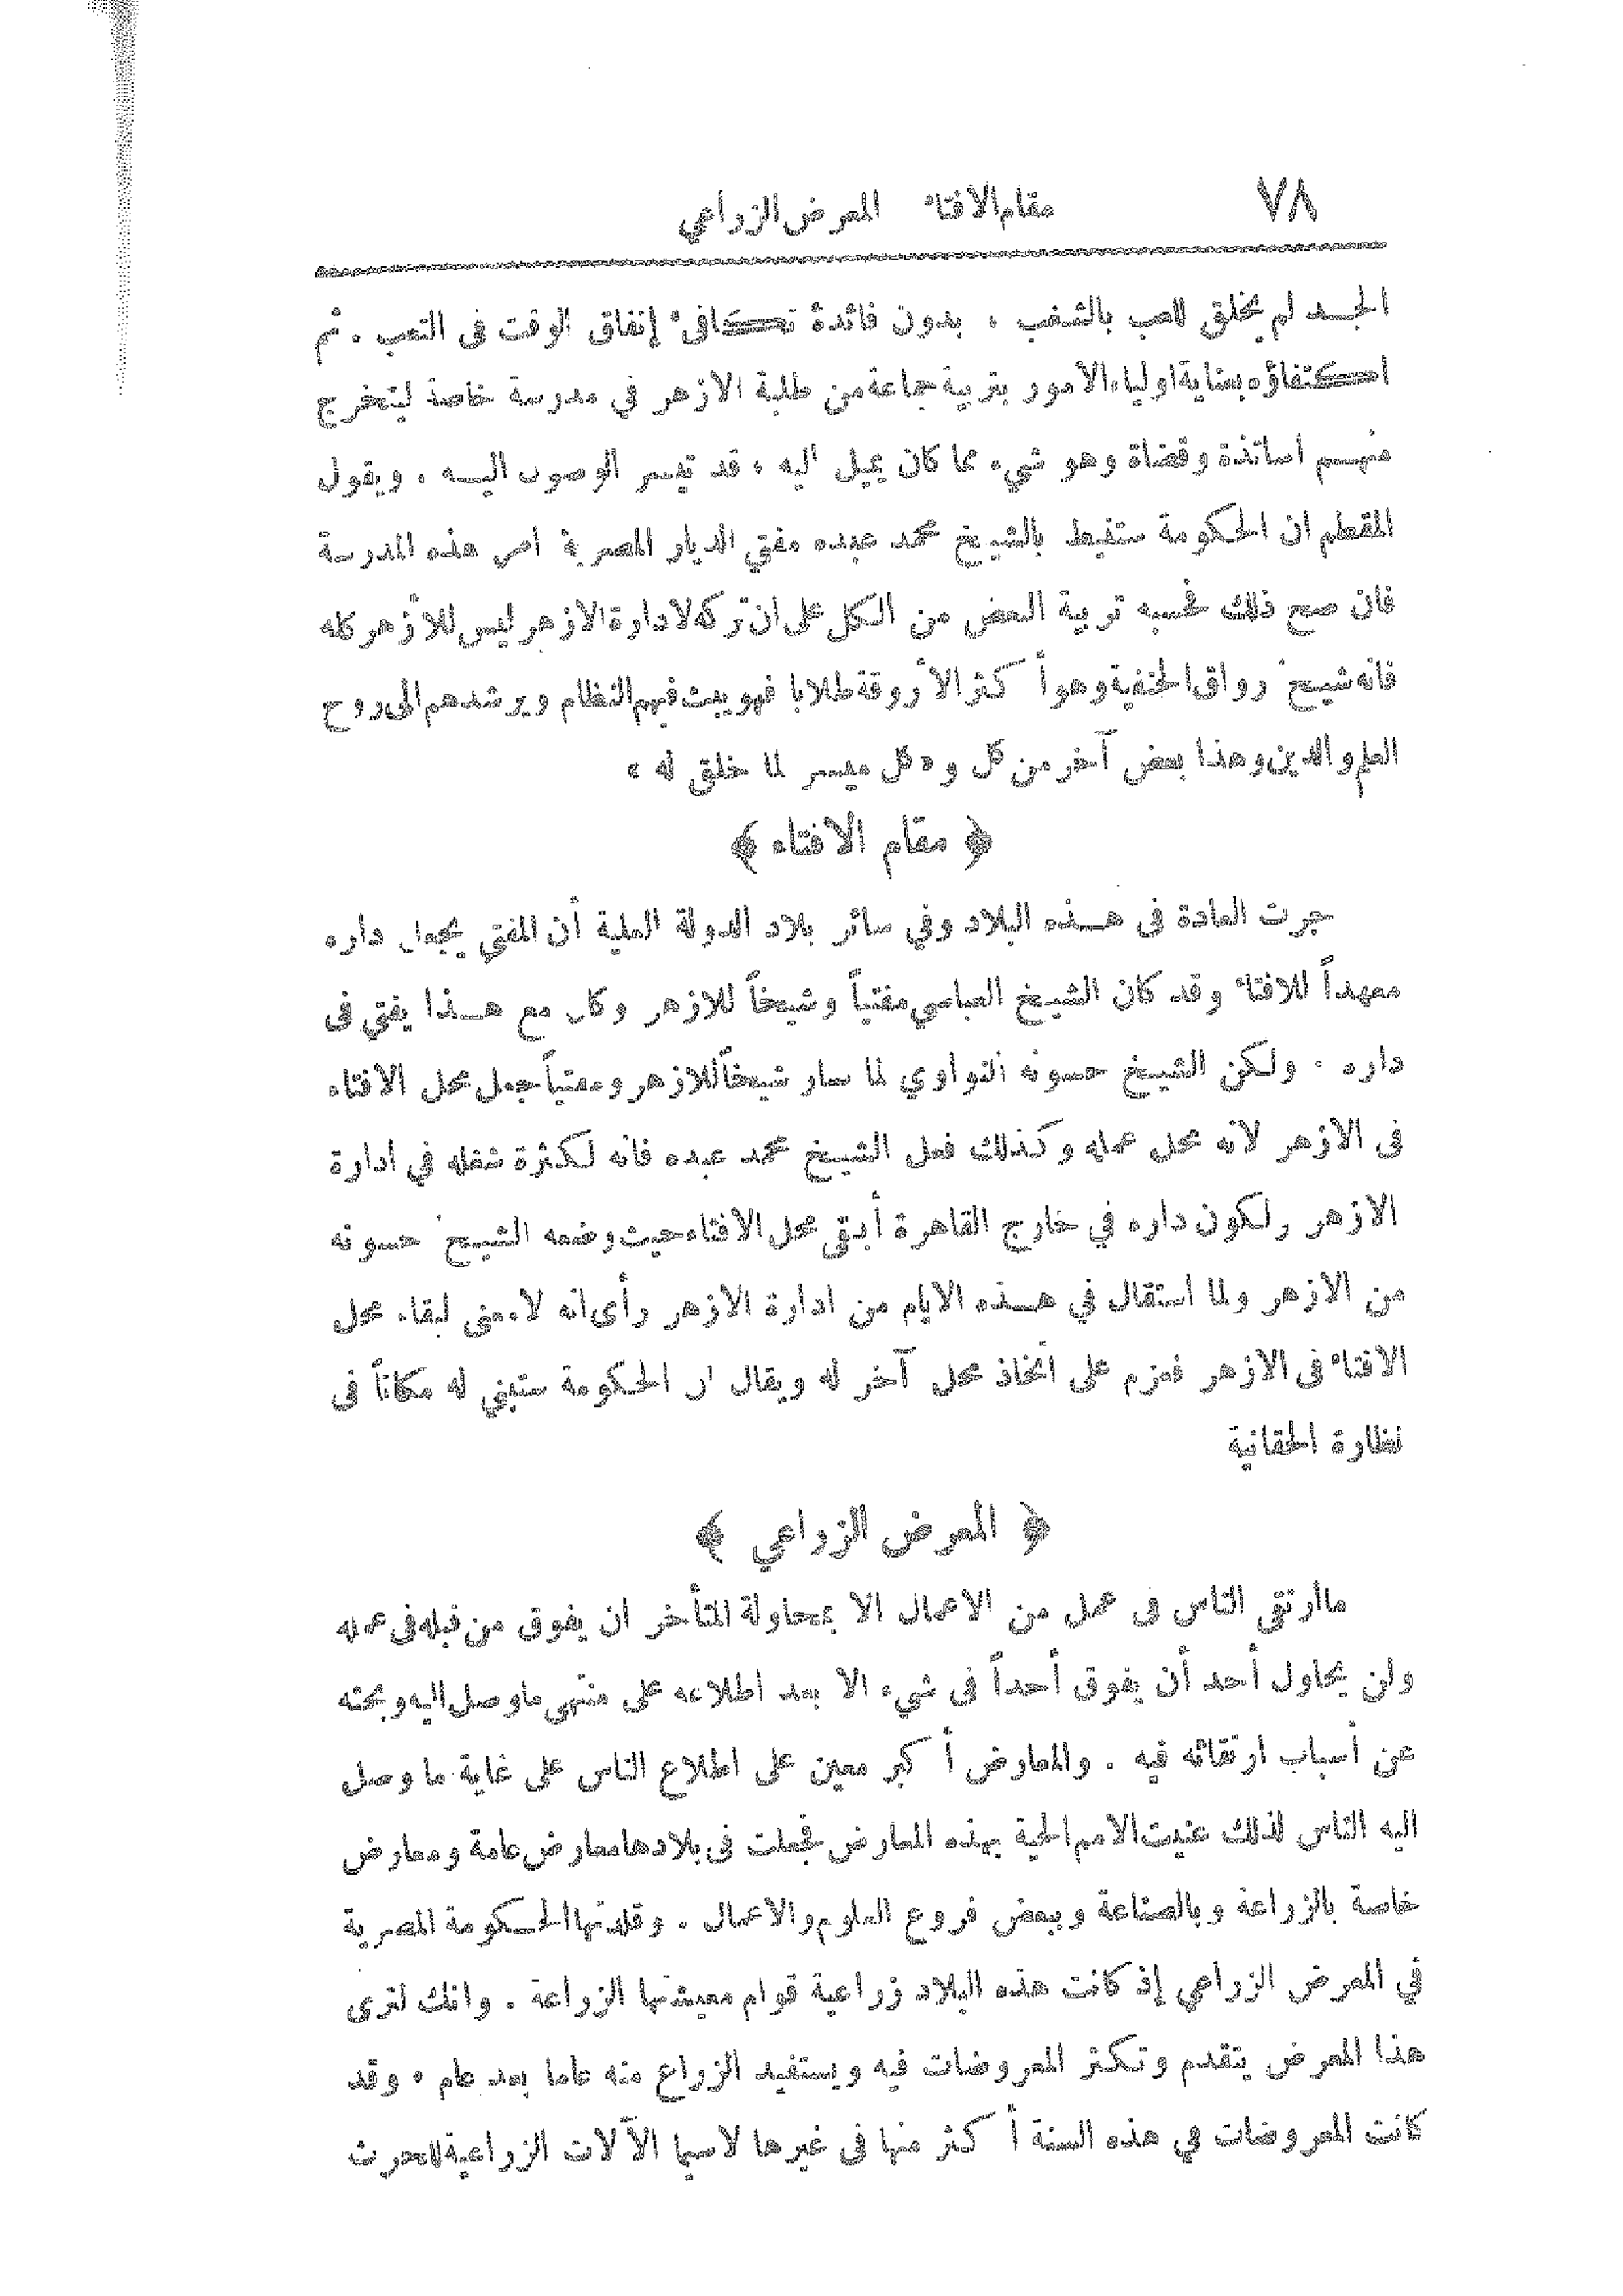 ٧٨ مقام الافتاء المعرض الزراعي
الجد لم يخلق للعب بالشغب ، بدون فائدة تكافئ إنفاق الوقت فى التعب . ثم
اكتفاؤه بعناية اولياء الامور بتربية جماعة من طلبة الازهر في مدرسة خاصة ليتخرج
منهم اساتذة وقضاة وهو شيء مما كان يميل اليه ، قد تيسر الوصول اليه . ويقول
المقطم ان الحكومة ستنيط بالشيخ محمد عبده مفتي الديار المصرية امر هذه المدرسة
فان صح ذلك فحسبه تربية البعض من الكل على ان تركه لادارة الازهر ليس للأزهر كله
فانه شيخ رواق الحنفية وهو أكثر الأروقة طلابا فهو يبث فيهم النظام ويرشدهم الى روح
العلم والدين وهذا بعض آخر من كل و«كل ميسر لما خلق له »
﴿ مقام الافتاء ﴾
جرت العادة فى هذه البلاد وفي سائر بلاد الدولة العلية أن المفتي يجعل داره
معهداً للافتاء وقد كان الشيخ العباسي مفتياً وشيخاً للازهر وكان مع هذا يفتي فى
داره . ولكن الشيخ حسونه النواوي لما صار شيخاً للازهر ومفتياً جعل محل الافتاء
فى الازهر لانه محل عمله وكذلك فعل الشيخ محمد عبده فانه لكثرة شغله في ادارة
الازهر ولكون داره في خارج القاهرة أبقى محل الافتاء حيث وضعه الشيخ حسونه
من الازهر ولما استقال في هذه الايام من ادارة الازهر رأى انه لا معنى لبقاء محل
الافتاء فى الازهر فعزم على اتخاذ محل آخر له ويقال ان الحكومة ستبني له مكاناً فى
نظارة الحقانية
﴿ المعرض الزراعي ﴾
ما ارتقى الناس فى عمل من الاعمال الا بمحاولة المتأخر ان يفوق من قبله فى عمله
ولن يحاول أحد أن يفوق أحداً فى شيء الا بعد اطلاعه على منتهى ما وصل اليه وبحثه
عن أسباب ارتقائه فيه . والمعارض أكبر معين على اطلاع الناس على غاية ما وصل
اليه الناس لذلك عنيت الامم الحية بهذه المعارض فجعلت فى بلادها معارض عامة ومعارض
خاصة بالزراعة وبالصناعة وببعض فروع العلوم والاعمال . وقلدتها الحكومة المصرية
في المعرض الزراعي إذ كانت هذه البلاد زراعية قوام معيشتها الزراعة . وانك لترى
هذا المعرض يتقدم وتكثر المعروضات فيه ويستفيد الزراع منه عاما بعد عام . وقد
كانت المعروضات في هذه السنة أكثر منها فى غيرها لاسيما الآلات الزراعية للحرث